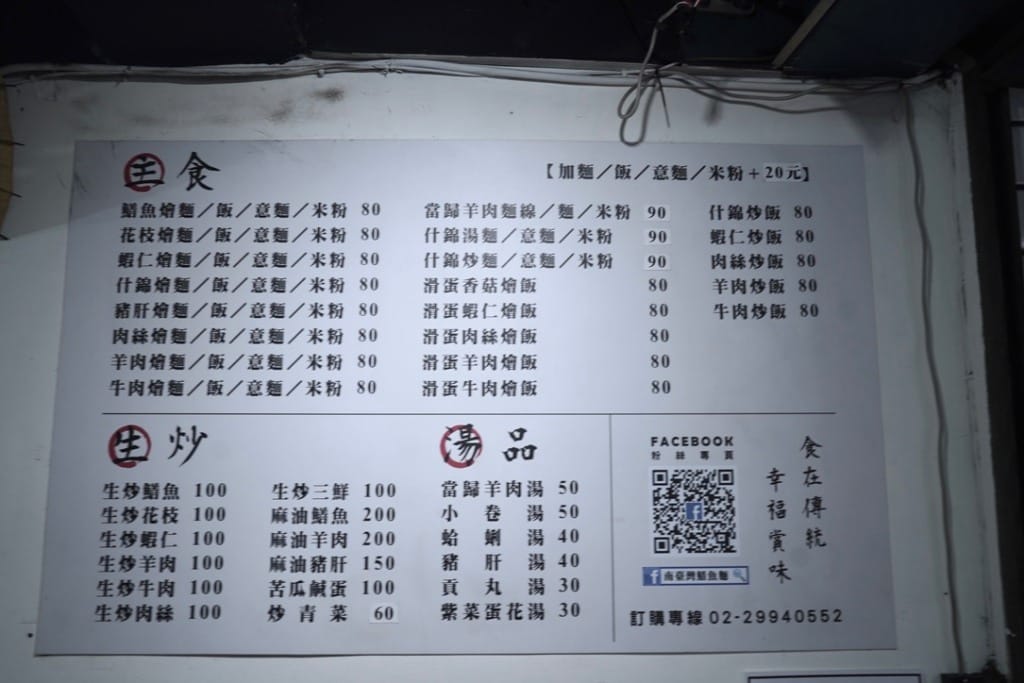 主食
【加麵／飯／意麵／米粉＋20元】
鱔魚燴麵／飯／意麵／米粉 80
花枝燴麵／飯／意麵／米粉 80
蝦仁燴麵／飯／意麵／米粉 80
什錦燴麵／飯／意麵／米粉 80
豬肝燴麵／飯／意麵／米粉 80
肉絲燴麵／飯／意麵／米粉 80
羊肉燴麵／飯／意麵／米粉 80
牛肉燴麵／飯／意麵／米粉 80
當歸羊肉麵線／麵／米粉 90
什錦湯麵／意麵／米粉 90
什錦炒麵／意麵／米粉 90
滑蛋香菇燴飯 80
滑蛋蝦仁燴飯 80
滑蛋肉絲燴飯 80
滑蛋羊肉燴飯 80
滑蛋牛肉燴飯 80
什錦炒飯 80
蝦仁炒飯 80
肉絲炒飯 80
羊肉炒飯 80
牛肉炒飯 80
生炒
生炒鱔魚 100
生炒花枝 100
生炒蝦仁 100
生炒羊肉 100
生炒牛肉 100
生炒肉絲 100
生炒三鮮 100
麻油鱔魚 200
麻油羊肉 200
麻油豬肝 150
苦瓜鹹蛋 100
炒青菜 60
湯品
當歸羊肉湯 50
小卷湯 50
蛤蜊湯 40
豬肝湯 40
貢丸湯 30
紫菜蛋花湯 30
FACEBOOK
粉絲專頁
f
f 南臺灣鱔魚麵
食在傳統
幸福賞味
訂購專線 02-29940552